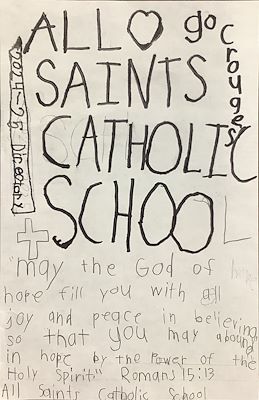 ALL
go Crouges
SAINTS
CATHOLIC
SCHOOL
2024-25 Directory
"may the God of
hope fill you with all
joy and peace in believing
so that you may abound
in hope by the Power of the
Holy Spirit" Romans 15:13
All Saints Catholic School